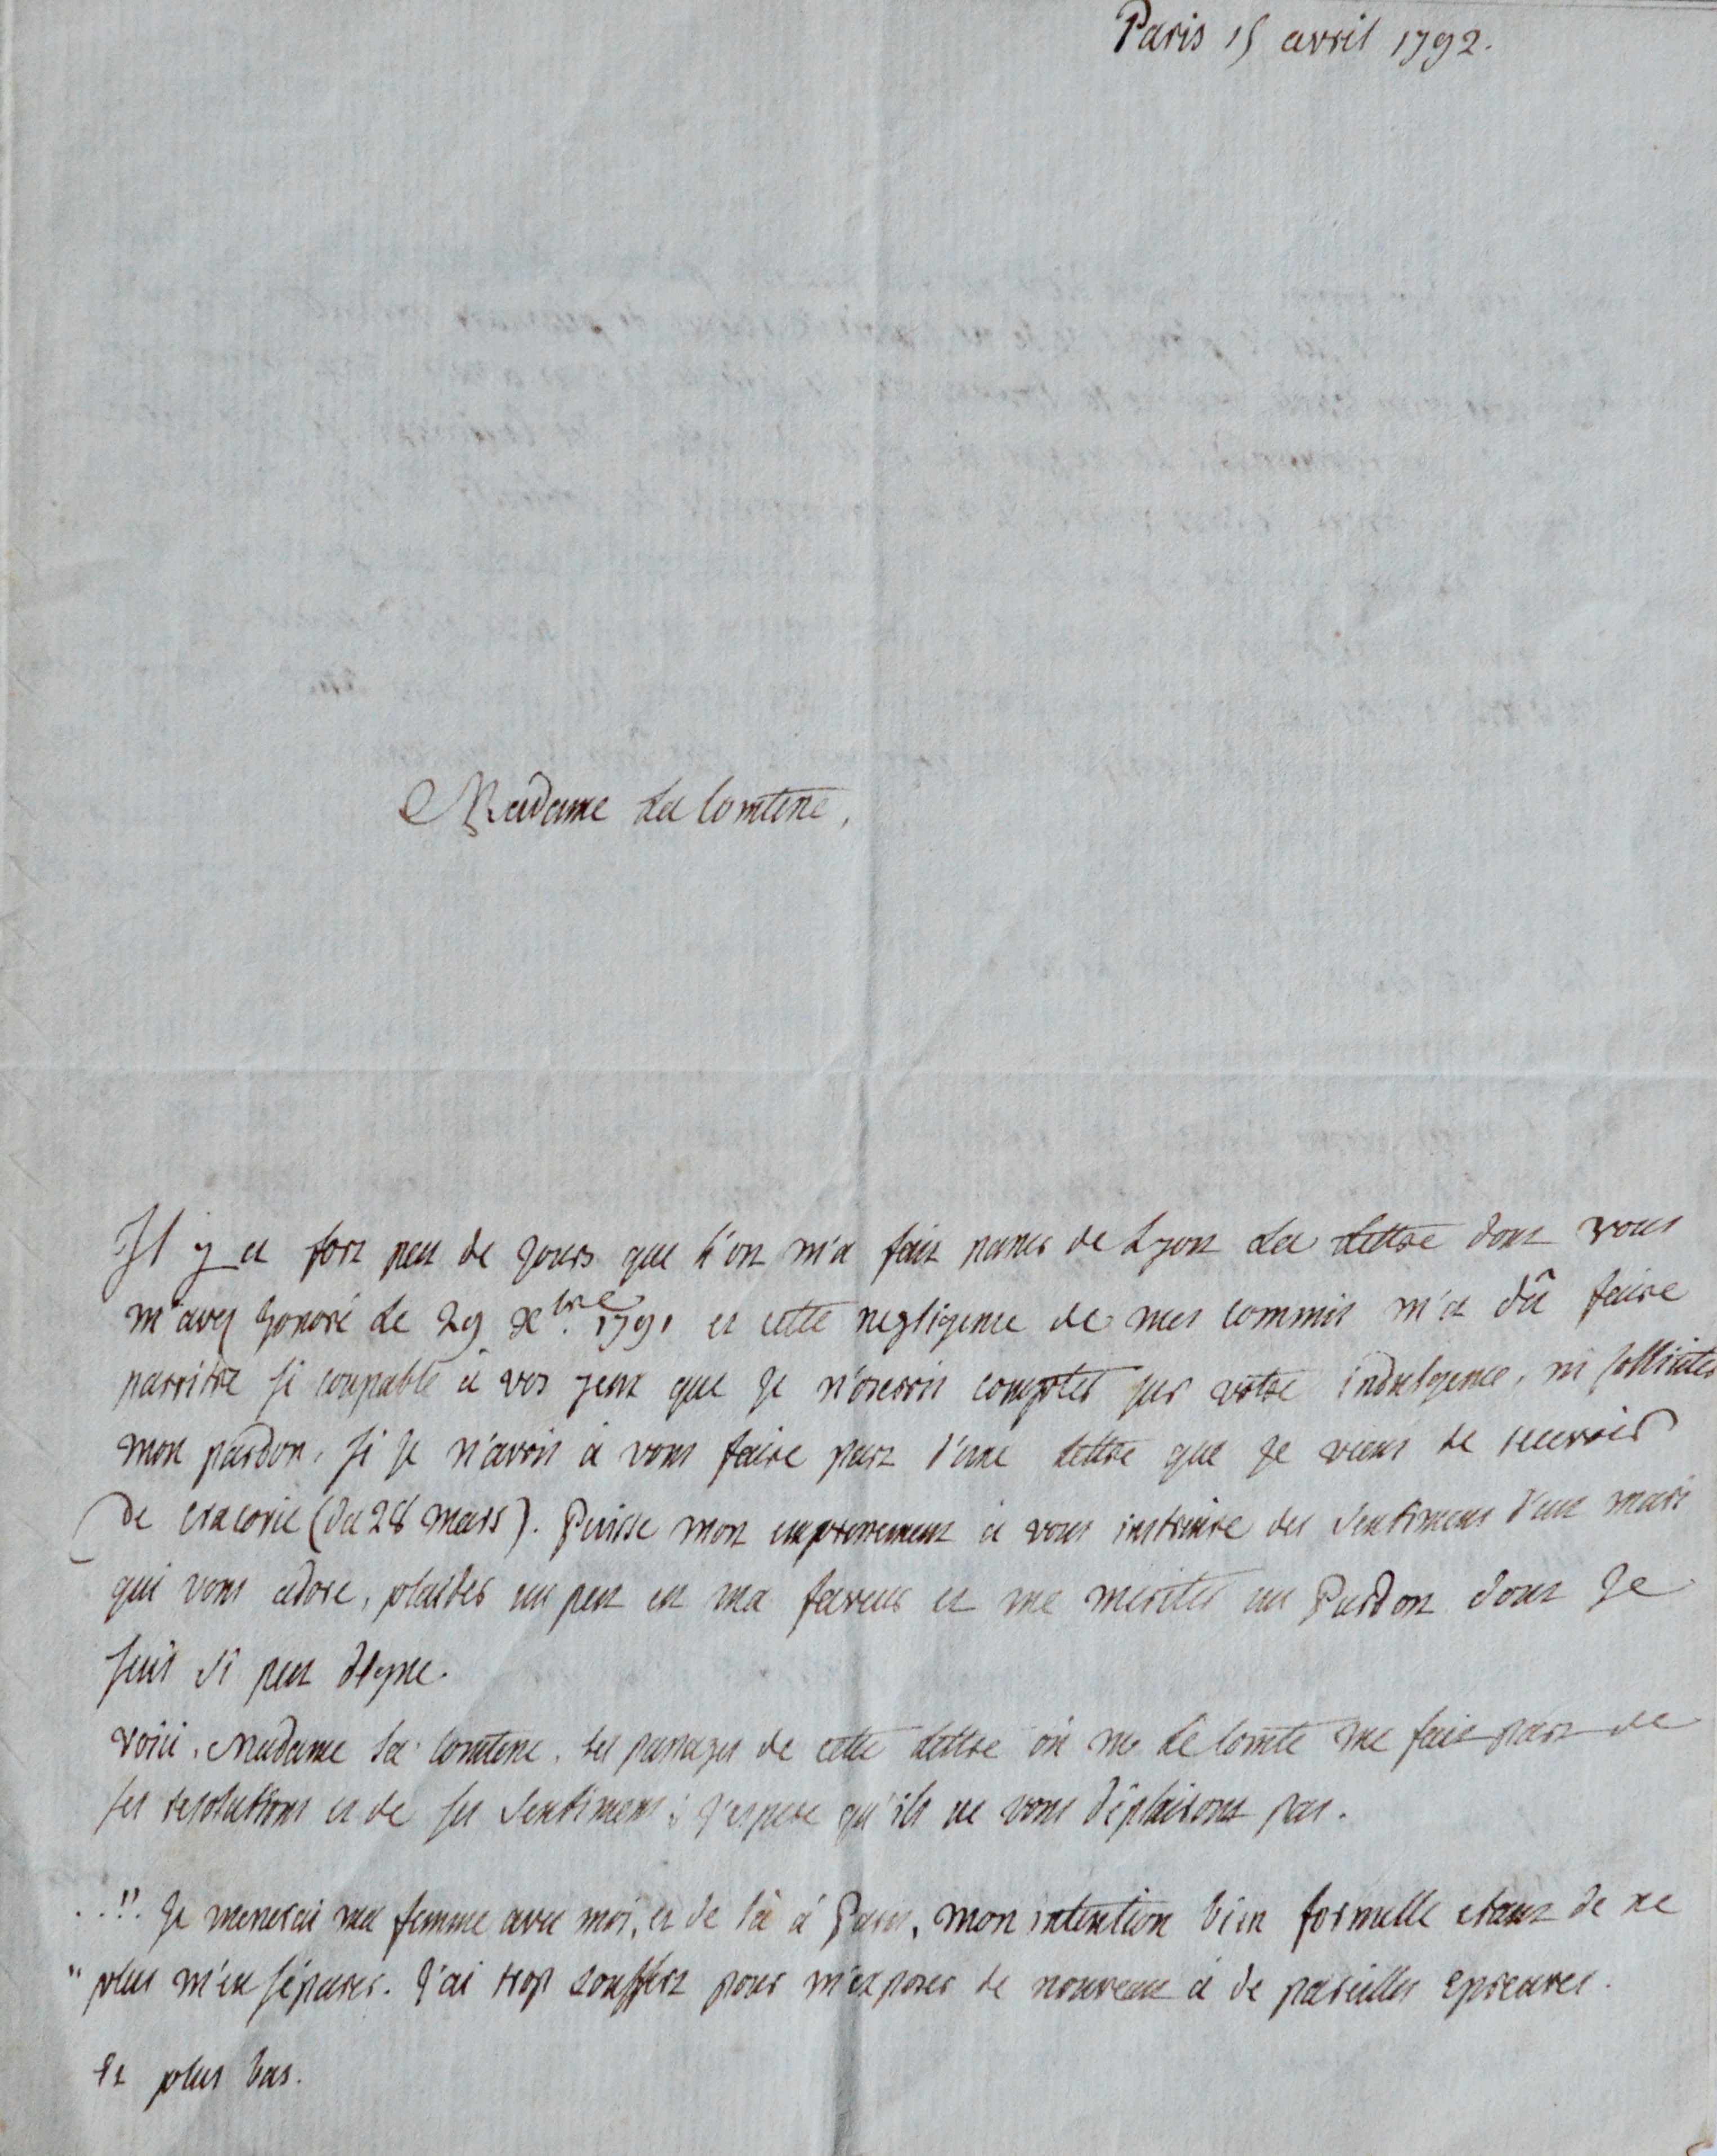 Paris 15 avril 1792.
Madame La Comtesse,
Il y a fort peu de jours que l'on m'a fait passer de Lyon La Lettre dont vous
m'avez honoré Le 29 Xbre. 1791 et cette negligence de mes commis m'a dû faire
parroitre si coupable à vos yeux que je n'oserois compter sur votre indulgence, ni solliciter
mon pardon, si je n'avois à vous faire part d'une Lettre que je viens de recevoir
de Cracovie (Du 28 Mars). Puisse mon empressement à vous instruire des sentimens d'un mari
qui vous adore, plaider un peu en ma faveur et me meriter un Pardon dont je
suis si peu digne.
voici, Madame la Comtesse, les passages de cette Lettre où mr Le Comte me fait part de
ses resolutions et de ses sentimens; j'espere qu'ils ne vous déplairont pas.
..". Je menerai ma femme avec moi, et de là à Paris, mon intention bien formelle etant de ne
" plus m'en séparer. J'ai trop souffert pour m'exposer de nouveau à de pareilles epreuves.
Et plus bas.